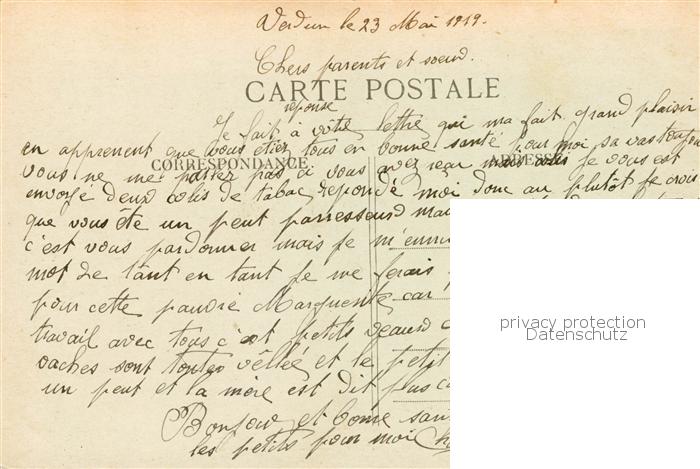 Verdun le 23 Mai 1919.
Chers parents et soeur.
CARTE POSTALE
réponse
Je fait à vôtre lettre qui ma fait grand plaisir
en apprenent que vous étiez tous en bonne santé pour moi sa vas toujour
CORRESPONDANCE ADRESSE
vous ne me parlez pas si vous avez reçu mais je vous est
envoyé deux colis de tabac reponde moi donc au plutôt je crois
que vous ête un peut paresseux mai
c'est vous pardonner mais je m'ennui
mot de tant en tant je me ferais
pour cette pauvre Marguerite car
travail avec tous c'est petits veaux
vaches sont toutes vêllée et le petit
un peut et la mère est dit plus
Bonjour et bonne san
les petits pour moi
privacy protection
Datenschutz